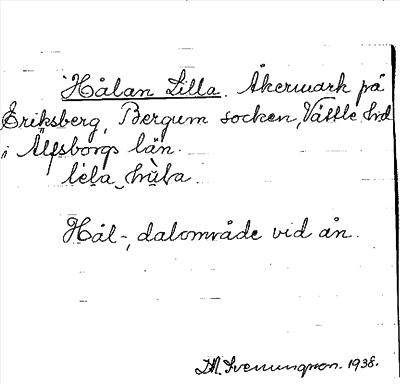 Hålan Lilla. Åkermark på
Eriksberg, Bergum socken, Vättle hd
i Älfsborgs län.
Hål-, dalområde vid ån.
1938.